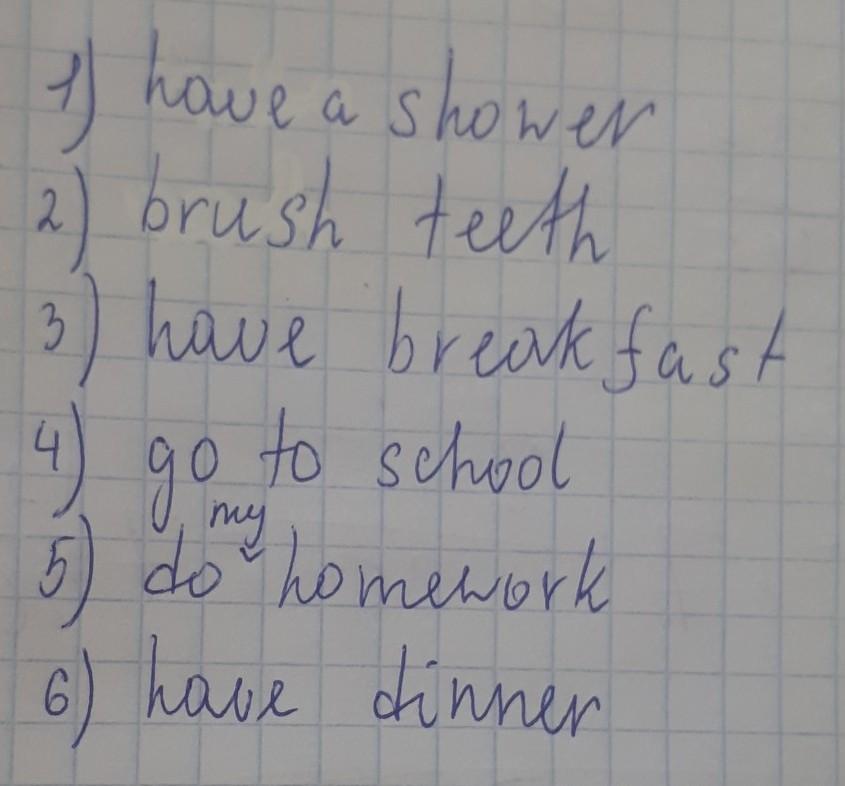 1) have a shower
2) brush teeth
3) have breakfast
4) go to school
5) do my homework
6) have dinner